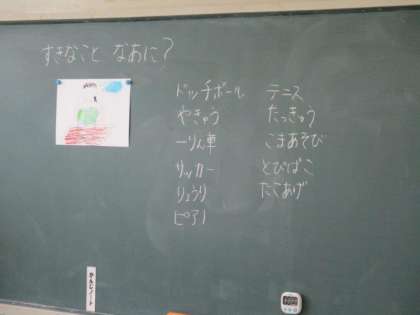 すきなこと なあに?
ドッチボール
やきゅう
一りん車
サッカー
りょうり
ピアノ
テニス
たっきゅう
こまあそび
とびばこ
たこあげ
かんじノート